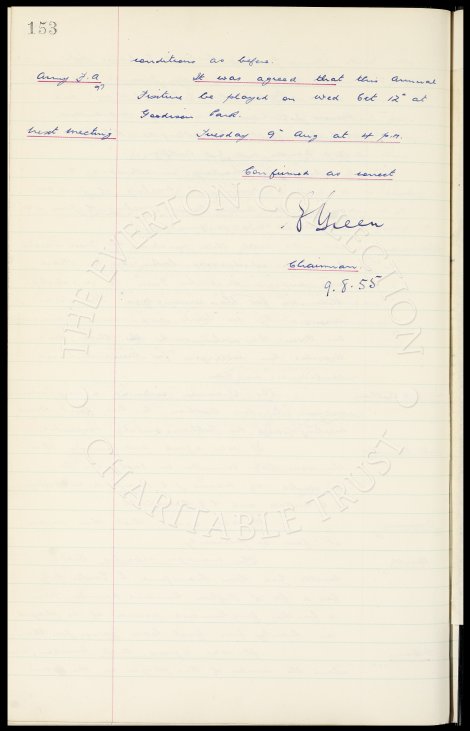 153
conditions as before.
Army F.A It was agreed that this Annual
Fixture be played on Wed Oct 12th at
Goodison Park.
Next Meeting Tuesday 9th Aug at 4 p.m.
Confirmed as correct
Green
Chairman
9.8.55
THE EVERTON COLLECTION
CHARITABLE TRUST